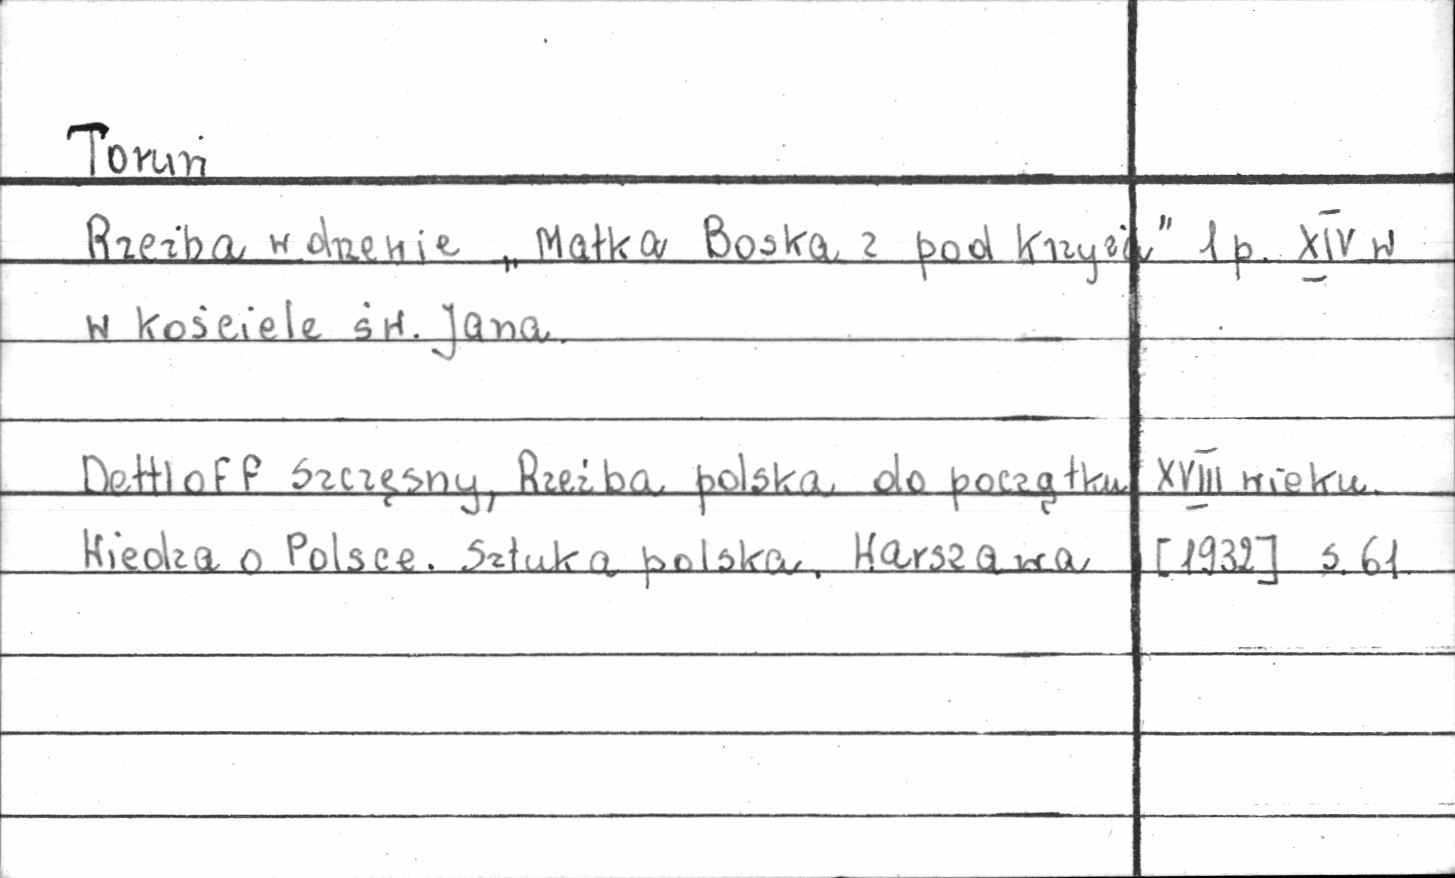 Toruń
Rzeźba w drzewie „Matka Boska z pod Krzyża” 1 p. XIV w
w kościele św. Jana.
Dettloff Szczęsny, Rzeźba polska do początku XVIII wieku.
Wiedza o Polsce. Sztuka polska. Warszawa [1932] s. 61